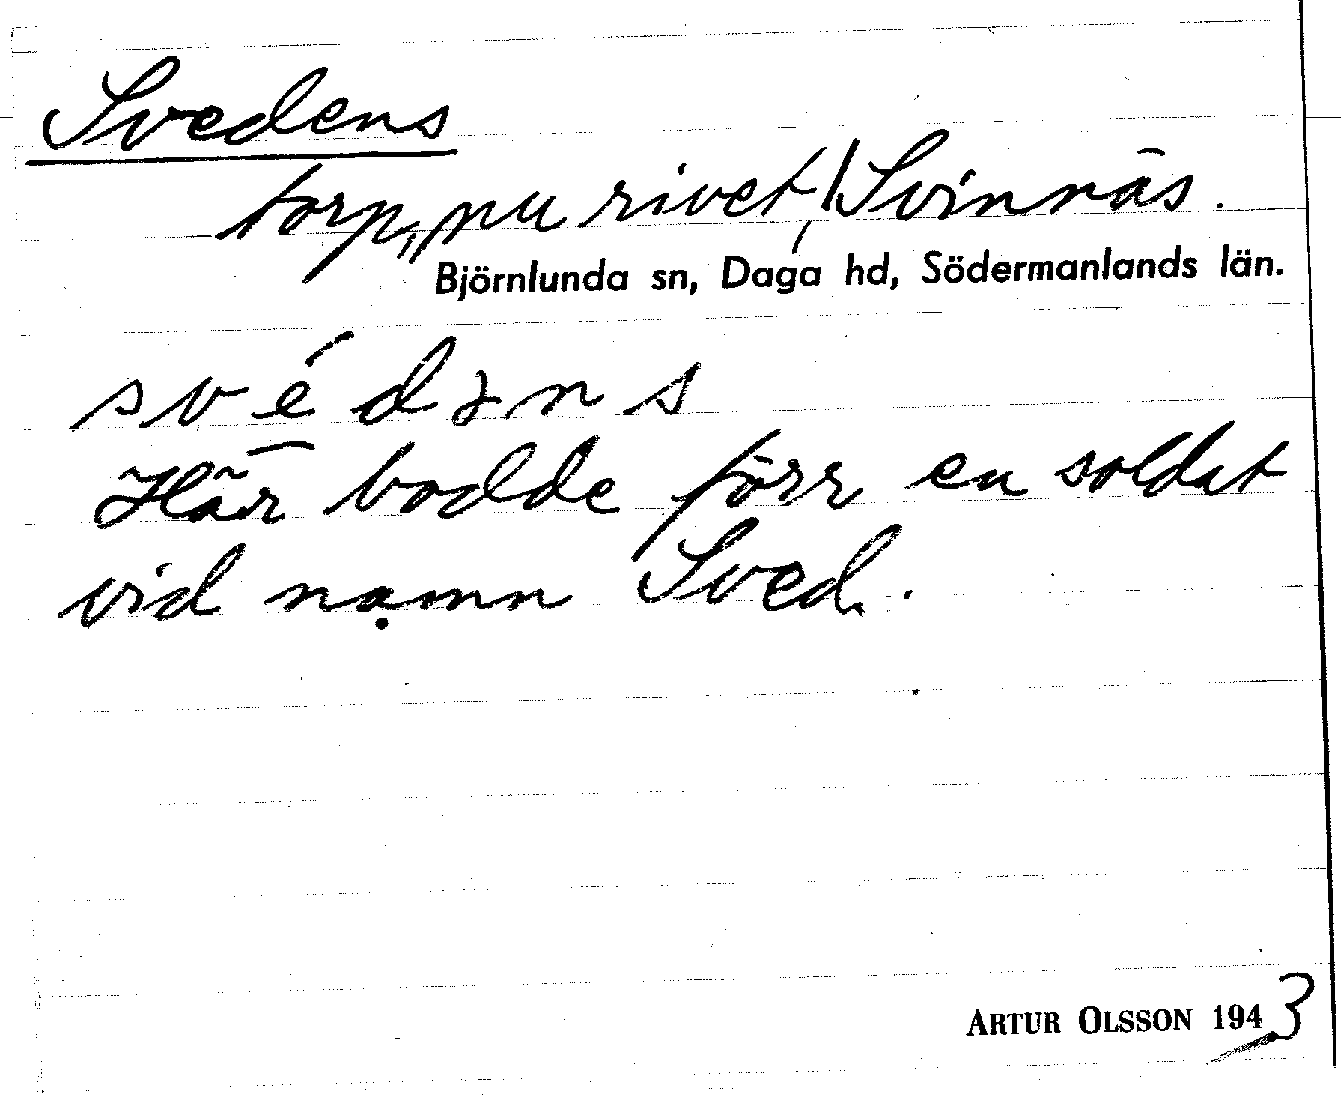 Svedens
torp, nu rivet, / Svinnäs.
Björnlunda sn, Daga hd, Södermanlands län.
svédəns
Här bodde förr en soldat
vid namn Sved.
ARTUR OLSSON 1943